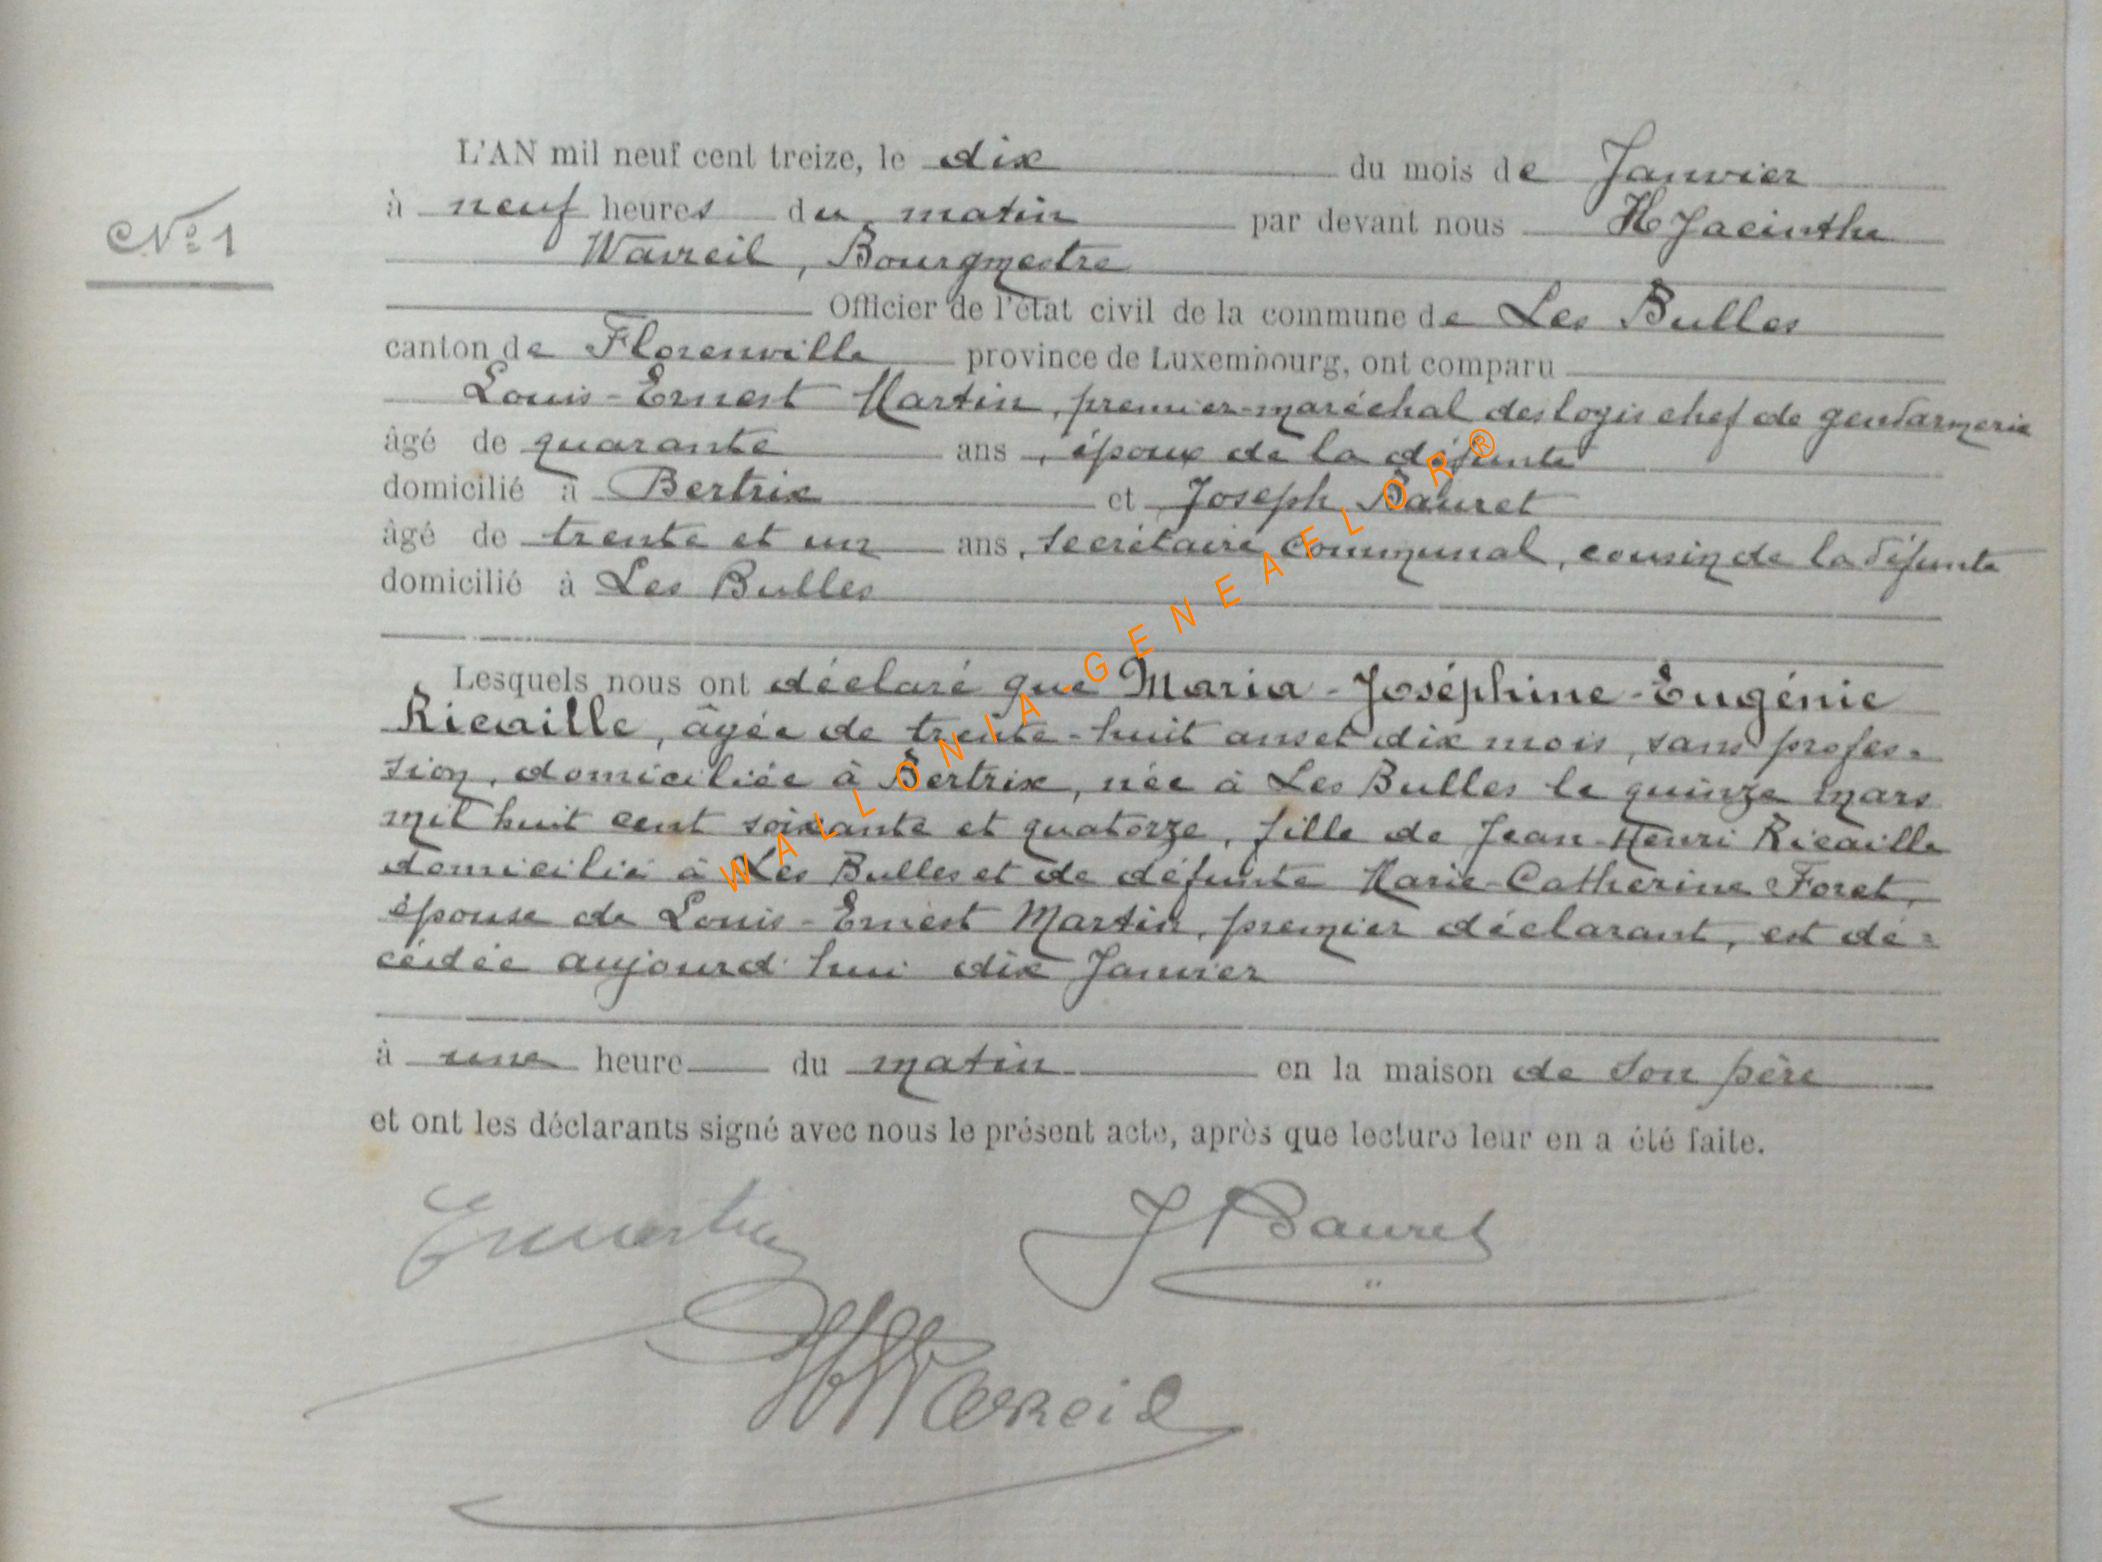 N° 1
L'AN mil neuf cent treize, le dix du mois de Janvier
à neuf heures du matin par devant nous H Jacinthe
Wavreil, Bourgmestre
Officier de l'état civil de la commune de Les Bulles
canton de Florenville province de Luxembourg, ont comparu
Louis-Ernest Martin, premier-maréchal des logis chef de gendarmerie
âgé de quarante ans, époux de la défunte
domicilié à Bertrix et Joseph Bauret
âgé de trente et un ans, secrétaire communal, cousin de la défunte
domicilié à Les Bulles
Lesquels nous ont déclaré que Maria-Joséphine-Eugénie
Ricaille, âgée de trente-huit ans et dix mois, sans profes-
sion, domiciliée à Bertrix, née à Les Bulles le quinze mars
mil huit cent soixante et quatorze, fille de Jean-Henri Ricaille
domicilié à Les Bulles et de défunte Marie-Catherine Foret,
épouse de Louis-Ernest Martin, premier déclarant, est dé-
cédée aujourd'hui dix Janvier
à une heure du matin en la maison de son père
et ont les déclarants signé avec nous le présent acte, après que lecture leur en a été faite.
Emartin J Bauret
H Wavreil
WALLONIA GENEAFLOR®